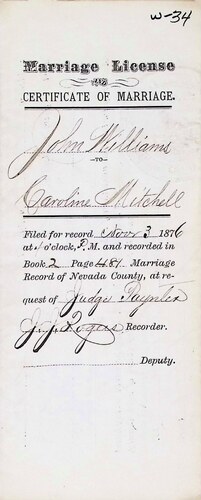 W-34
Marriage License
AND
CERTIFICATE OF MARRIAGE.
John Williams
—TO—
Caroline Mitchell
Filed for record Nov 3 1876
at 1 o'clock, P. M. and recorded in
Book 2 Page 481 Marriage
Record of Nevada County, at re-
quest of Judge Paynter
J. J. Rogers Recorder.
Deputy.